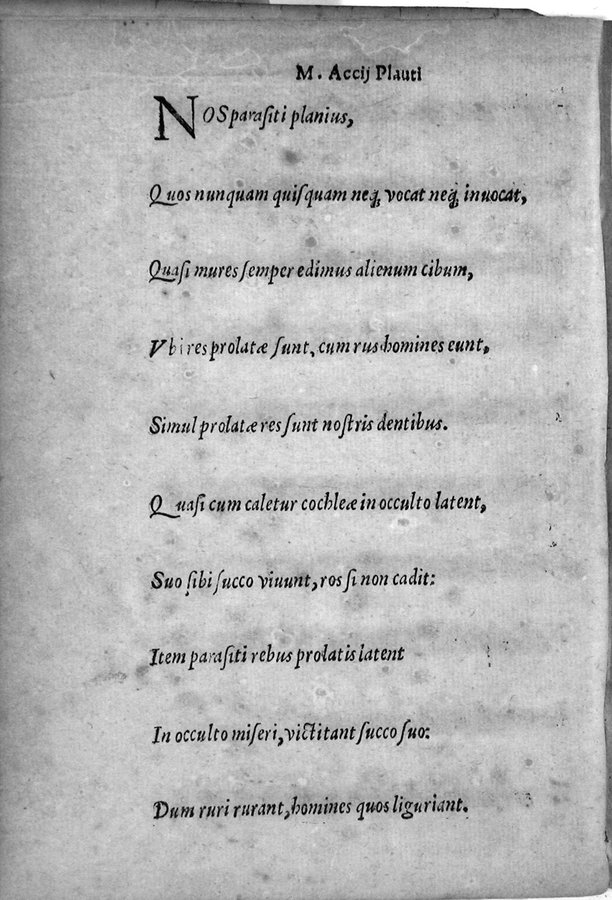 M. Accij Plauti
NOS parasiti planius,
Quos nunquam quisquam neq; vocat neq; inuocat,
Quasi mures semper edimus alienum cibum,
Vbi res prolatæ sunt, cum rus homines eunt,
Simul prolatæ res sunt nostris dentibus.
Quasi cum caletur cochleæ in occulto latent,
Suo sibi succo viuunt, ros si non cadit:
Item parasiti rebus prolatis latent
In occulto miseri, victitant succo suo:
Dum ruri rurant, homines quos liguriant.